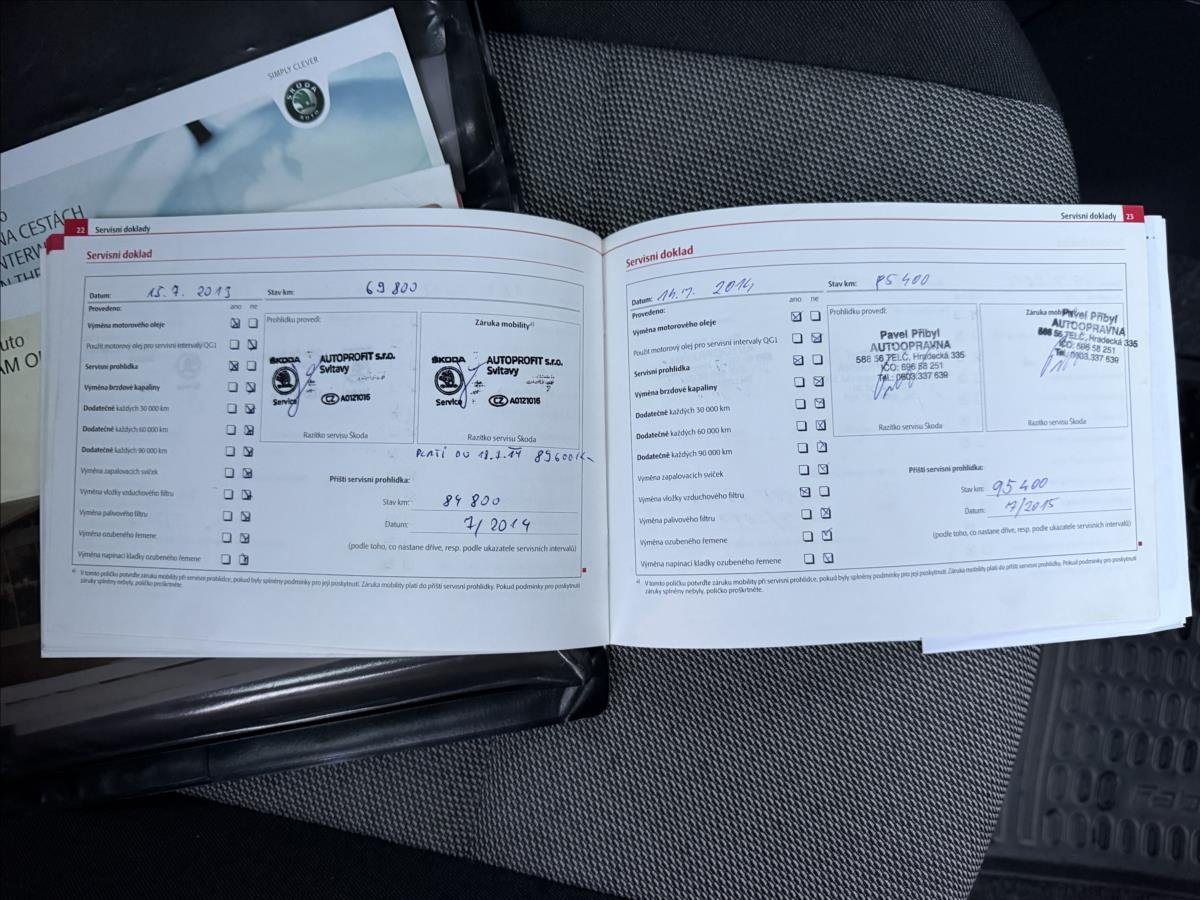 SIMPLY CLEVER
ŠKODA
AUTO
NA CESTÁCH
22 Servisní doklady
Servisní doklad
Datum: 15.7. 2013 Stav km: 69 800
Provedeno: ano ne
Výměna motorového oleje
Použit motorový olej pro servisní intervaly QG1
Servisní prohlídka
Výměna brzdové kapaliny
Dodatečně každých 30 000 km
Dodatečně každých 60 000 km
Dodatečně každých 90 000 km
Výměna zapalovacích svíček
Výměna vložky vzduchového filtru
Výměna palivového filtru
Výměna ozubeného řemene
Výměna napínací kladky ozubeného řemene
Prohlídku provedl:
ŠKODA AUTOPROFIT s.r.o.
Svitavy
Service CZ A0121016
Razítko servisu Škoda
Záruka mobility a)
ŠKODA AUTOPROFIT s.r.o.
Svitavy
Service CZ A0121016
Razítko servisu Škoda
PLATÍ DO 18.7.14 89.600 km
Příští servisní prohlídka:
Stav km: 84 800
Datum: 7/2014
(podle toho, co nastane dříve, resp. podle ukazatele servisních intervalů)
a) V tomto políčku potvrďte záruku mobility při servisní prohlídce, pokud byly splněny podmínky pro její poskytnutí. Záruka mobility platí do příští servisní prohlídky. Pokud podmínky pro poskytnutí
záruky splněny nebyly, políčko proškrtněte.
Servisní doklady 23
Servisní doklad
Datum: 14.7. 2014 Stav km: 85 400
Provedeno: ano ne
Výměna motorového oleje
Použit motorový olej pro servisní intervaly QG1
Servisní prohlídka
Výměna brzdové kapaliny
Dodatečně každých 30 000 km
Dodatečně každých 60 000 km
Dodatečně každých 90 000 km
Výměna zapalovacích svíček
Výměna vložky vzduchového filtru
Výměna palivového filtru
Výměna ozubeného řemene
Výměna napínací kladky ozubeného řemene
Prohlídku provedl:
Pavel Přibyl
AUTOOPRAVNA
588 56 TELČ, Hradecká 335
IČO: 696 58 251
Tel.: 0603.337 639
Razítko servisu Škoda
Pavel Přibyl
AUTOOPRAVNA
588 56 TELČ, Hradecká 335
IČO: 696 58 251
Tel.: 0603.337 639
Razítko servisu Škoda
Příští servisní prohlídka:
Stav km: 95 400
Datum: 7/2015
(podle toho, co nastane dříve, resp. podle ukazatele servisních intervalů)
a) V tomto políčku potvrďte záruku mobility při servisní prohlídce, pokud byly splněny podmínky pro její poskytnutí. Záruka mobility platí do příští servisní prohlídky. Pokud podmínky pro poskytnutí
záruky splněny nebyly, políčko proškrtněte.